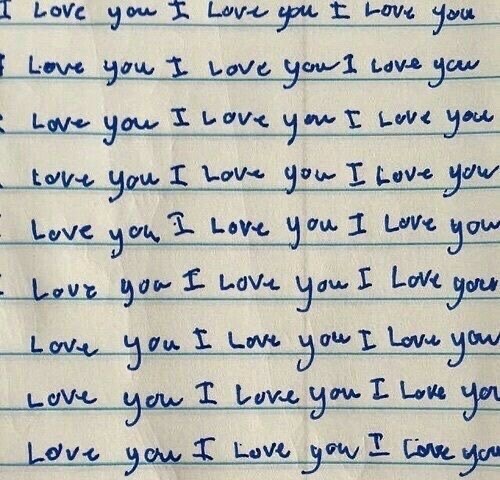 I Love you I Love you I Love you
I Love you I Love you I Love you
Love you I Love you I Love you
Love you I Love you I Love you
Love you I Love you I Love you
Love you I Love you I Love your
Love you I Love you I Love you
Love you I Love you I Love you
Love you I Love you I Love you